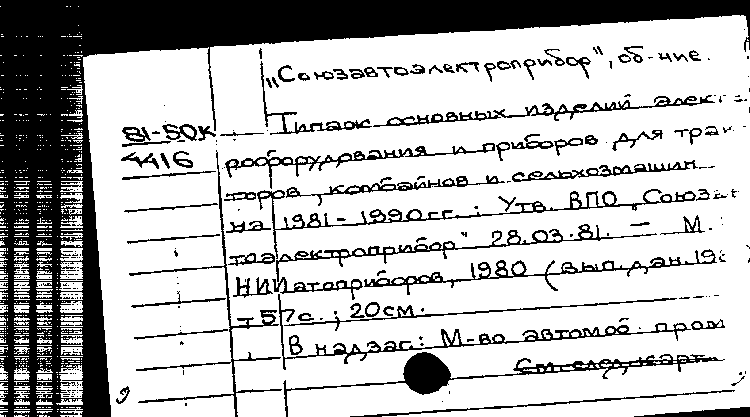 „Союзавтоэлектроприбор", об-ние.
81-50К Типаж основных изделий элект-
4416 рооборудования и приборов для трак-
торов, комбайнов и сельхозмашин
на 1981-1990 гг.: Утв. ВПО „Союзав-
тоэлектроприбор" 28.03.81. — М.:
НИИавтоприборов, 1980 (вып. дан. 198
57с.; 20см.
В надзаг.: М-во автомоб. пром
См. след. карт.